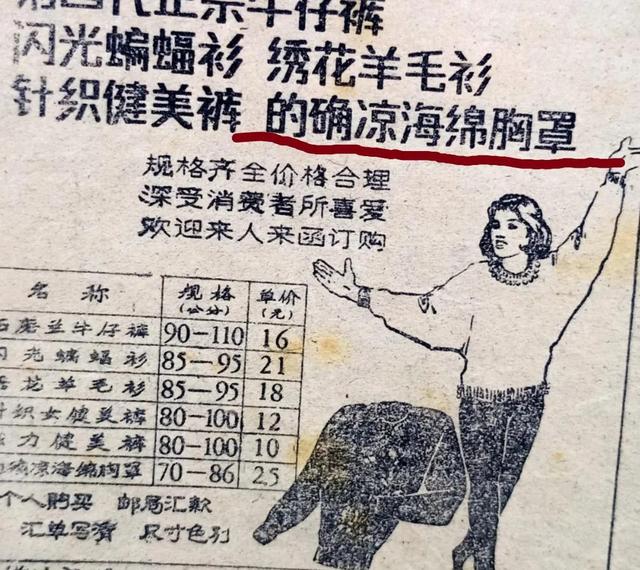 第四代正宗牛仔裤
闪光蝙蝠衫 绣花羊毛衫
针织健美裤 的确凉海绵胸罩
规格齐全价格合理
深受消费者所喜爱
欢迎来人来函订购
名称 规格(公分) 单价(元)
石磨兰牛仔裤 90—110 16
闪光蝙蝠衫 85—95 21
绣花羊毛衫 85—95 18
针织女健美裤 80—100 12
力健美裤 80—100 10
的确凉海绵胸罩 70—86 2.5
个人购买 邮局汇款
汇单写清 尺寸色别